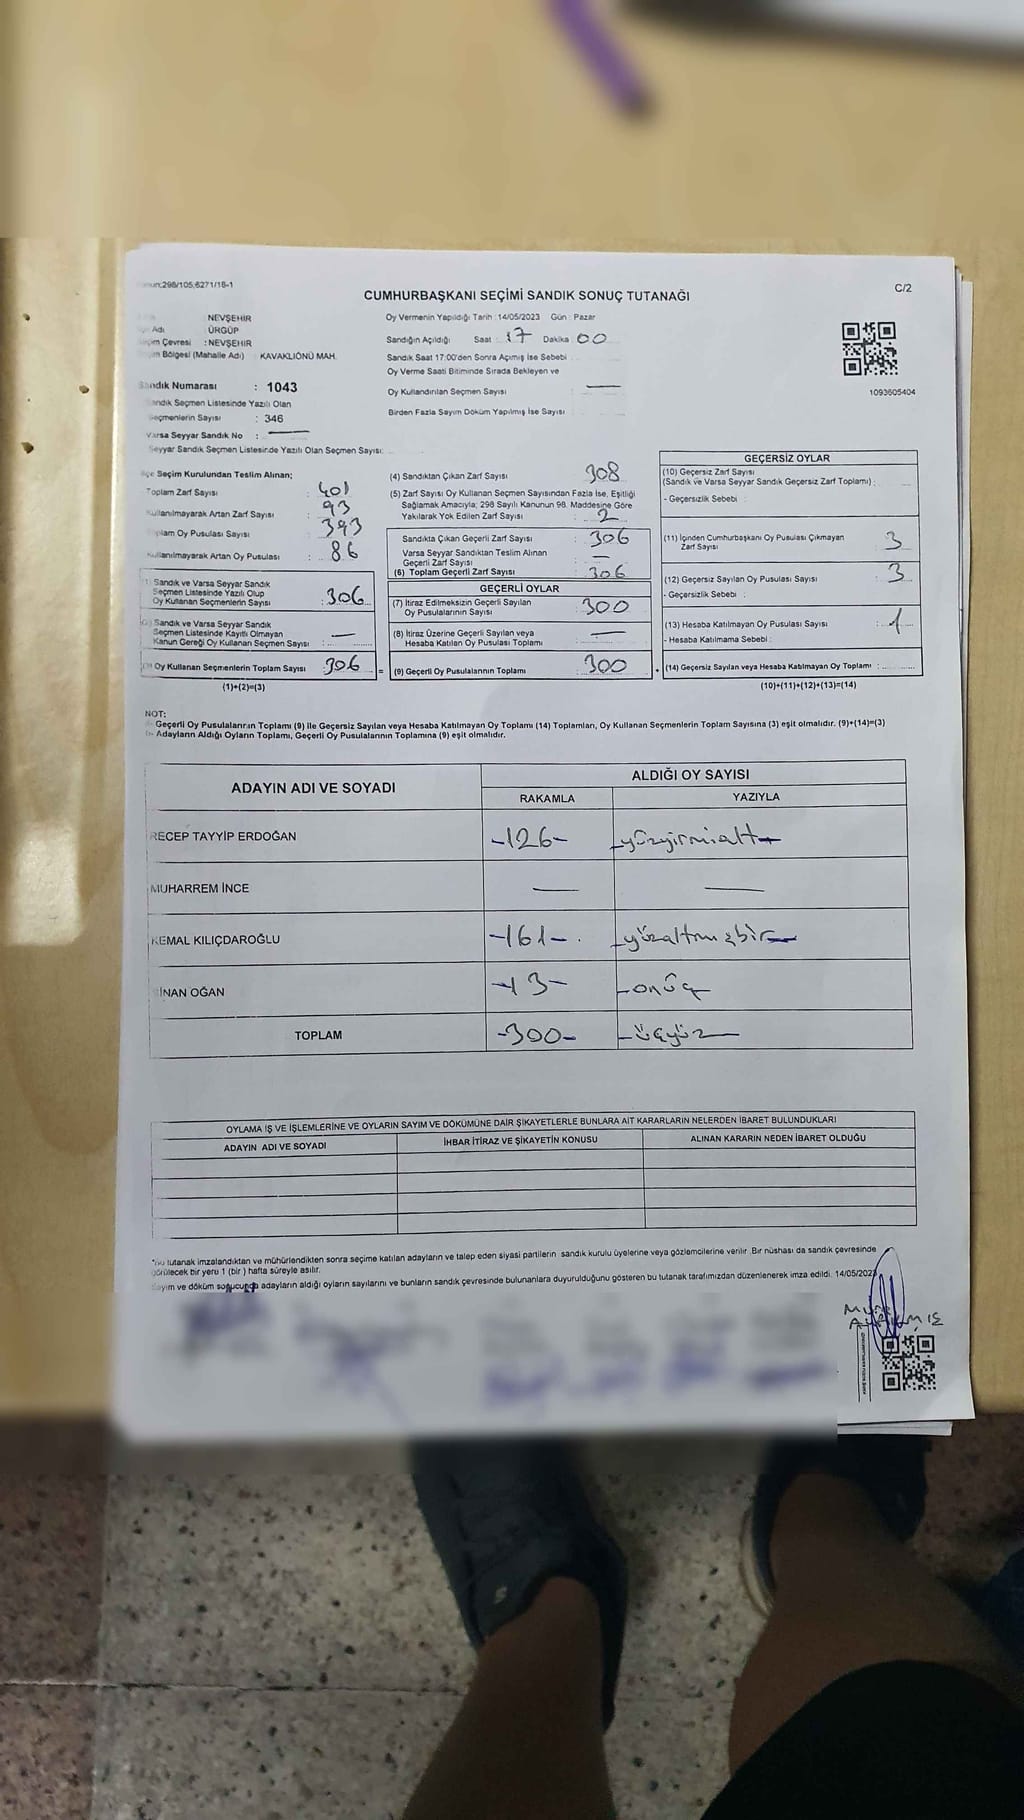 298/105;6271/18-1
C/2
CUMHURBAŞKANI SEÇİMİ SANDIK SONUÇ TUTANAĞI
: NEVŞEHİR
Adı : ÜRGÜP
Çevresi : NEVŞEHİR
Bölgesi (Mahalle Adı) : KAVAKLIÖNÜ MAH.
Sandık Numarası : 1043
Sandık Seçmen Listesinde Yazılı Olan
Seçmenlerin Sayısı : 346
Varsa Seyyar Sandık No : —
Seyyar Sandık Seçmen Listesinde Yazılı Olan Seçmen Sayısı:
Oy Vermenin Yapıldığı Tarih :14/05/2023 Gün : Pazar
Sandığın Açıldığı Saat : 17 Dakika : 00
Sandık Saat 17:00'den Sonra Açımış İse Sebebi
Oy Verme Saati Bitiminde Sırada Bekleyen ve
Oy Kullandırılan Seçmen Sayısı : —
Birden Fazla Sayım Döküm Yapılmış İse Sayısı
1093605404
Seçim Kurulundan Teslim Alınan;
Toplam Zarf Sayısı : 401
Kullanılmayarak Artan Zarf Sayısı : 93
Toplam Oy Pusulası Sayısı : 393
Kullanılmayarak Artan Oy Pusulası : 86
(1) Sandık ve Varsa Seyyar Sandık
Seçmen Listesinde Yazılı Olup
Oy Kullanan Seçmenlerin Sayısı : 306
(2) Sandık ve Varsa Seyyar Sandık
Seçmen Listesinde Kayıtlı Olmayan
Kanun Gereği Oy Kullanan Seçmen Sayısı : —
(3) Oy Kullanan Seçmenlerin Toplam Sayısı : 306
(1)+(2)=(3)
(4) Sandıktan Çıkan Zarf Sayısı : 308
(5) Zarf Sayısı Oy Kullanan Seçmen Sayısından Fazla İse, Eşitliği
Sağlamak Amacıyla; 298 Sayılı Kanunun 98. Maddesine Göre
Yakılarak Yok Edilen Zarf Sayısı : 2
Sandıkta Çıkan Geçerli Zarf Sayısı : 306
Varsa Seyyar Sandıktan Teslim Alınan
Geçerli Zarf Sayısı : —
(6) Toplam Geçerli Zarf Sayısı : 306
GEÇERLİ OYLAR
(7) İtiraz Edilmeksizin Geçerli Sayılan
Oy Pusulalarının Sayısı : 300
(8) İtiraz Üzerine Geçerli Sayılan veya
Hesaba Katılan Oy Pusulası Toplamı : —
(9) Geçerli Oy Pusulalarının Toplamı : 300
GEÇERSİZ OYLAR
(10) Geçersiz Zarf Sayısı
(Sandık ve Varsa Seyyar Sandık Geçersiz Zarf Toplamı) :
- Geçersizlik Sebebi :
(11) İçinden Cumhurbaşkanı Oy Pusulası Çıkmayan
Zarf Sayısı : 3
(12) Geçersiz Sayılan Oy Pusulası Sayısı : 3
- Geçersizlik Sebebi :
(13) Hesaba Katılmayan Oy Pusulası Sayısı : 1
- Hesaba Katılmama Sebebi :
(14) Geçersiz Sayılan veya Hesaba Katılmayan Oy Toplamı :
(10)+(11)+(12)+(13)=(14)
NOT:
Geçerli Oy Pusulalarının Toplamı (9) ile Geçersiz Sayılan veya Hesaba Katılmayan Oy Toplamı (14) Toplamları, Oy Kullanan Seçmenlerin Toplam Sayısına (3) eşit olmalıdır. (9)+(14)=(3)
Adayların Aldığı Oyların Toplamı, Geçerli Oy Pusulalarının Toplamına (9) eşit olmalıdır.
ADAYIN ADI VE SOYADI
ALDIĞI OY SAYISI
RAKAMLA YAZIYLA
RECEP TAYYİP ERDOĞAN -126- -yüzyirmialtı-
MUHARREM İNCE — —
KEMAL KILIÇDAROĞLU -161- -yüzaltmışbir-
SİNAN OĞAN -13- -onüç-
TOPLAM -300- -üçyüz-
OYLAMA İŞ VE İŞLEMLERİNE VE OYLARIN SAYIM VE DÖKÜMÜNE DAİR ŞİKAYETLERLE BUNLARA AİT KARARLARIN NELERDEN İBARET BULUNDUKLARI
ADAYIN ADI VE SOYADI İHBAR İTİRAZ VE ŞİKAYETİN KONUSU ALINAN KARARIN NEDEN İBARET OLDUĞU
*Bu tutanak imzalandıktan ve mühürlendikten sonra seçime katılan adayların ve talep eden siyasi partilerin sandık kurulu üyelerine veya gözlemcilerine verilir .Bir nüshası da sandık çevresinde
görülecek bir yere 1 (bir ) hafta süreyle asılır.
Sayım ve döküm sonucunda adayların aldığı oyların sayılarını ve bunların sandık çevresinde bulunanlara duyurulduğunu gösteren bu tutanak tarafımızdan düzenlenerek imza edildi. 14/05/2023